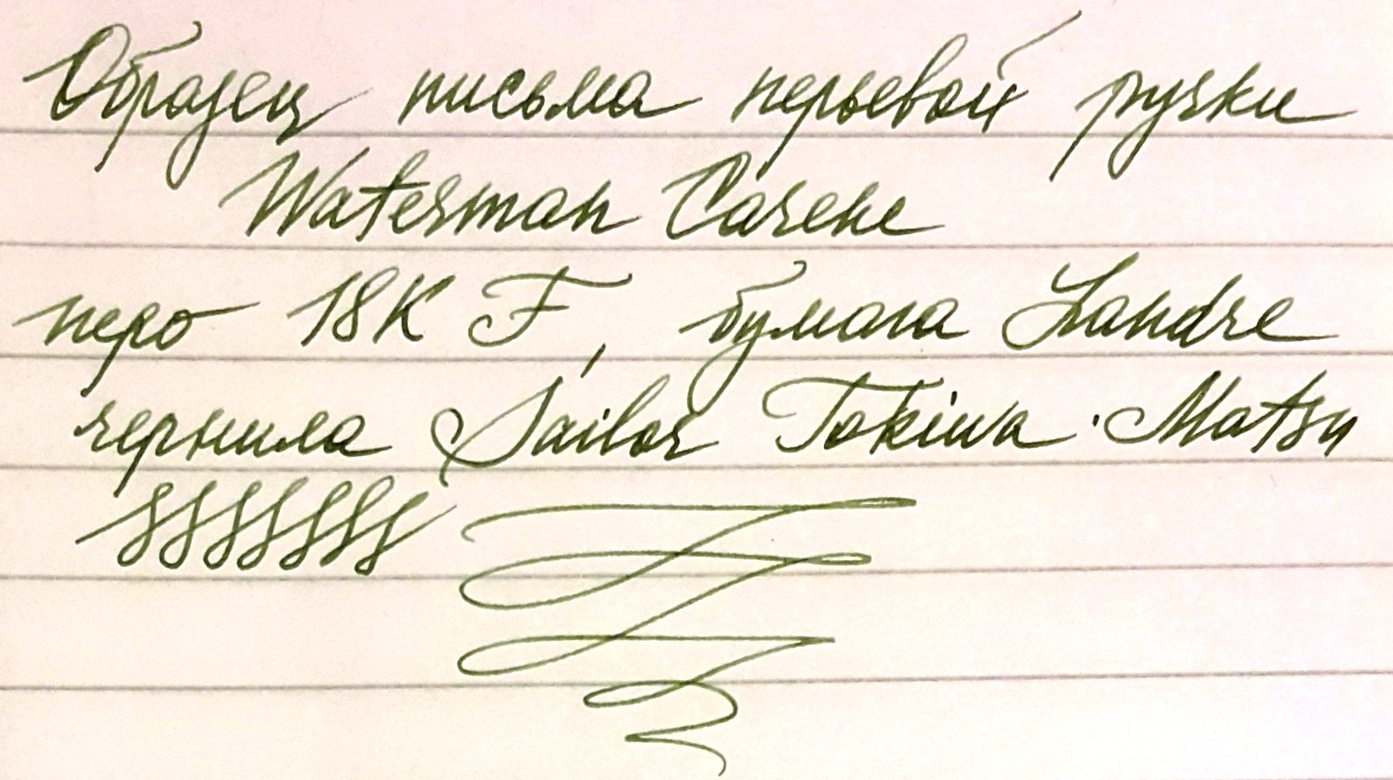 Образец письма перьевой ручки
Waterman Carene
перо 18K F, бумага Landre
чернила Sailor Tokiwa · Matsu